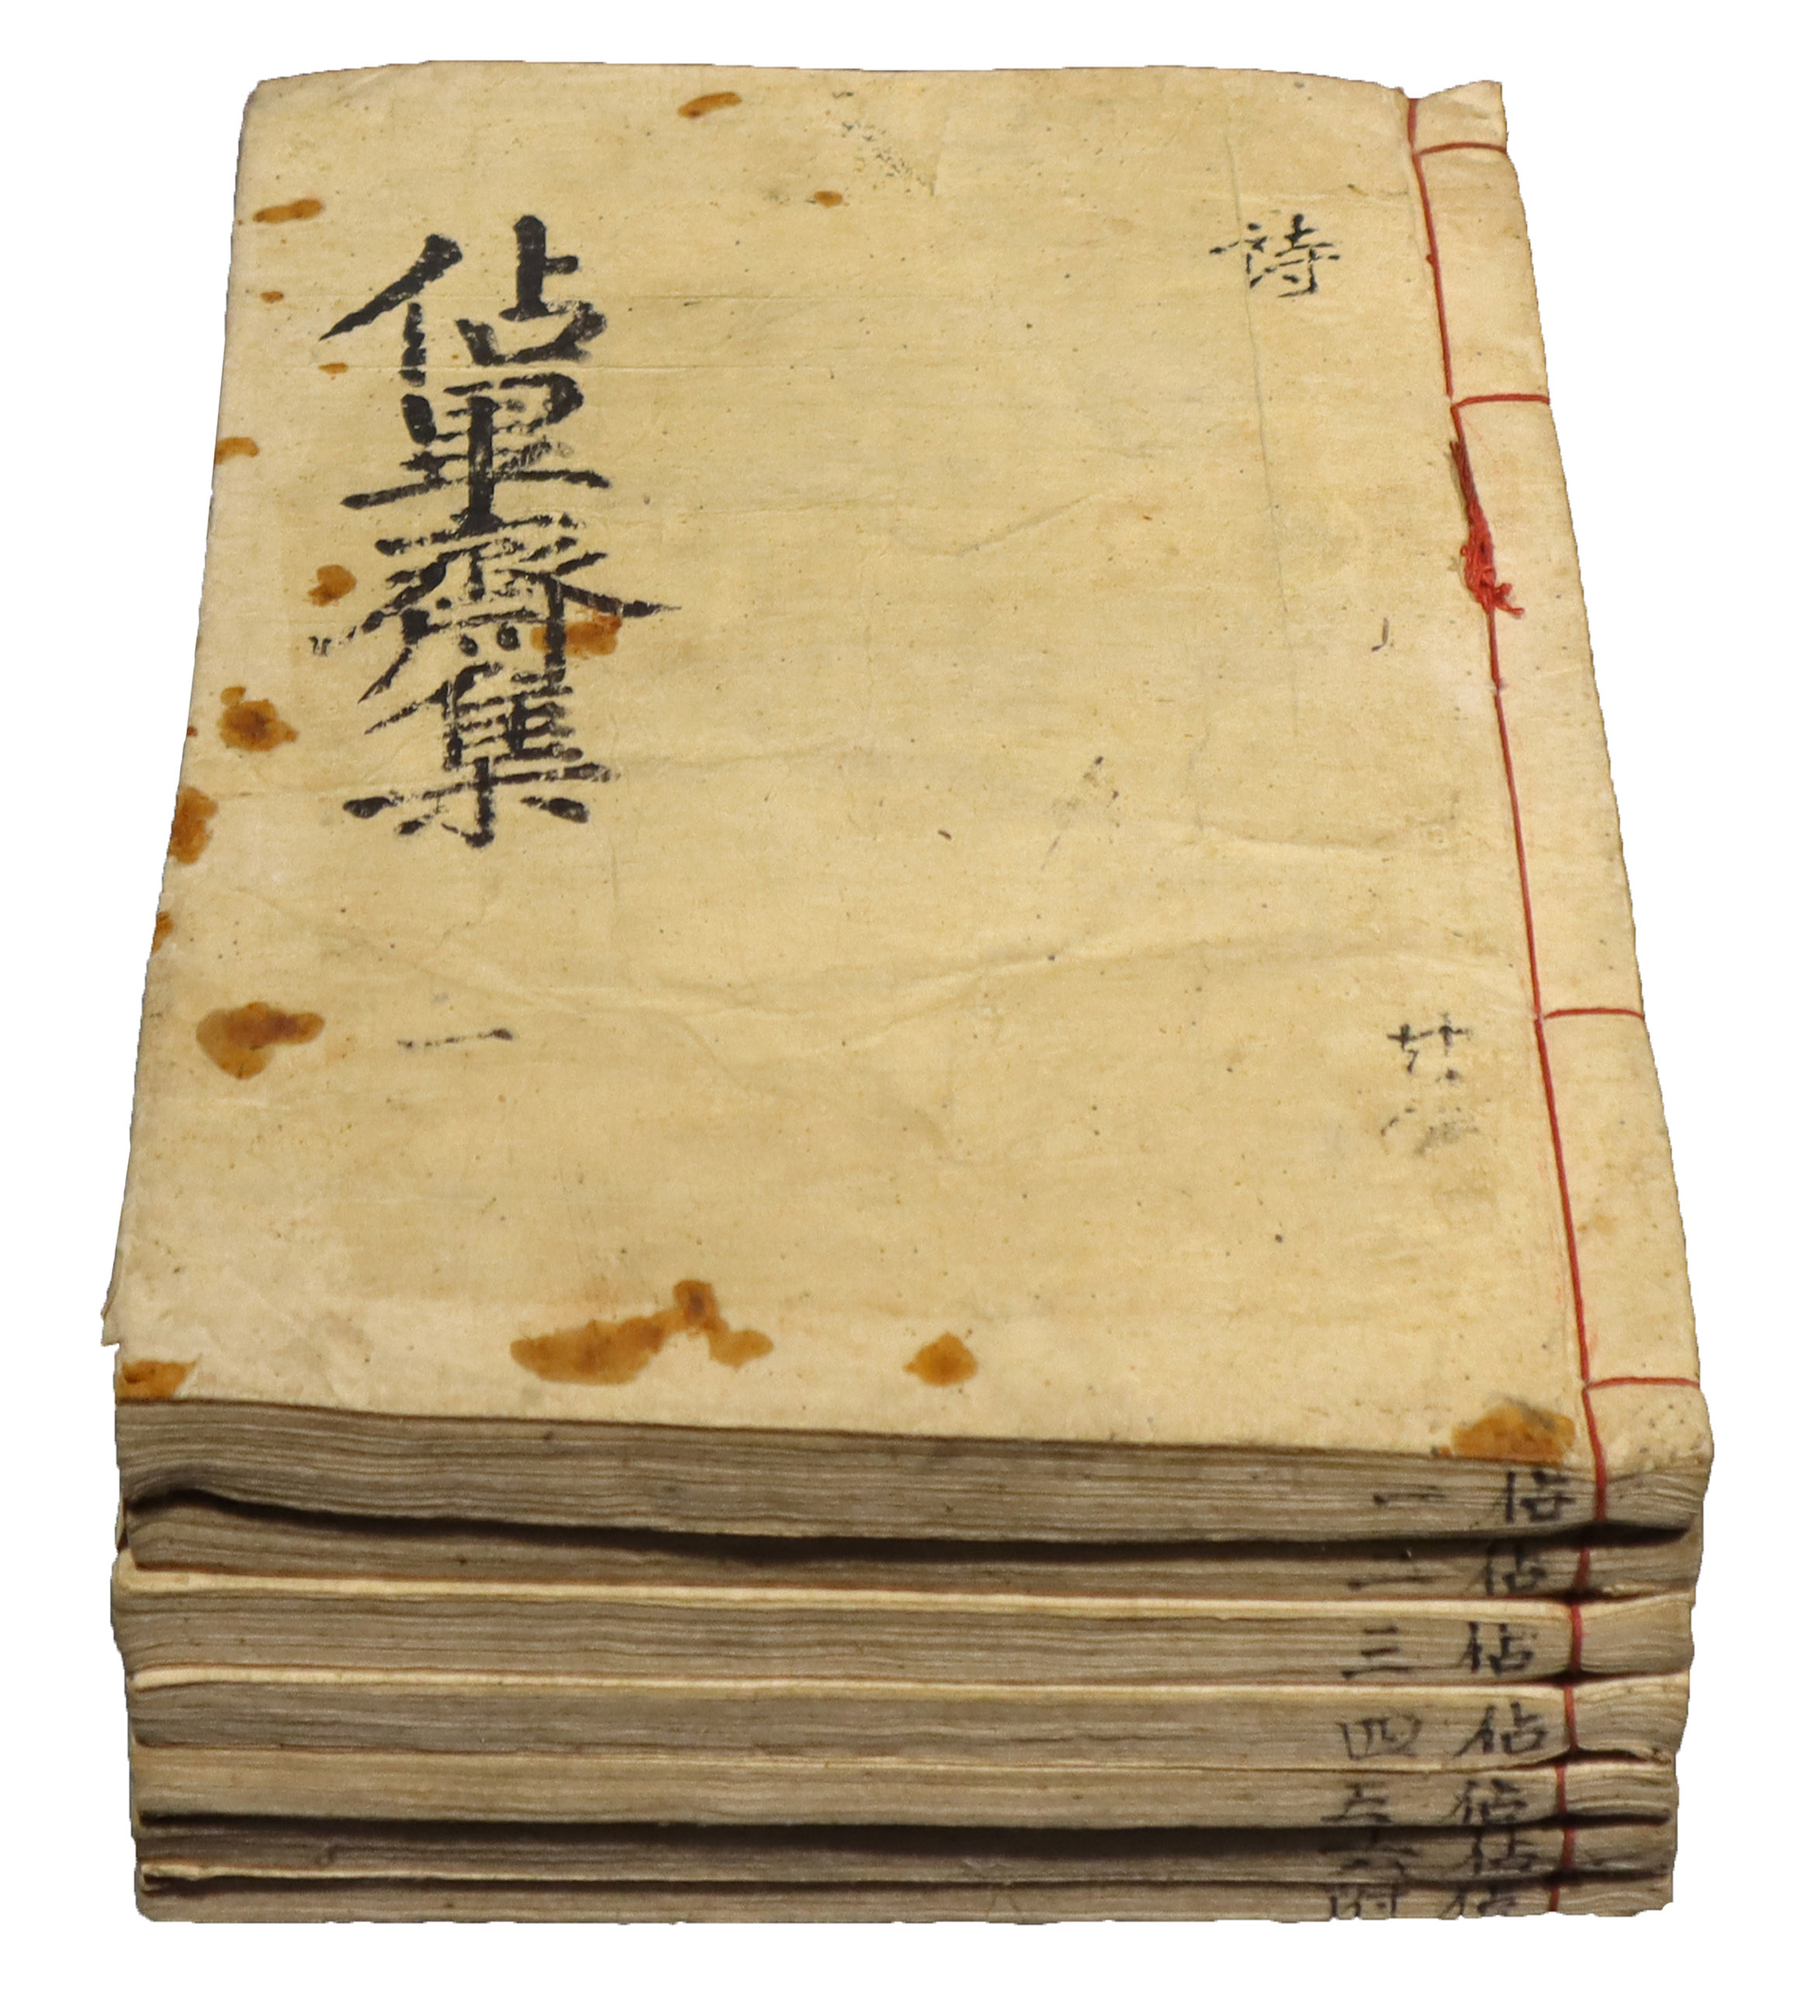 詩
佔畢齋集
一
佔 一
佔 二
佔 三
佔 四
佔 五
佔 六
佔 附